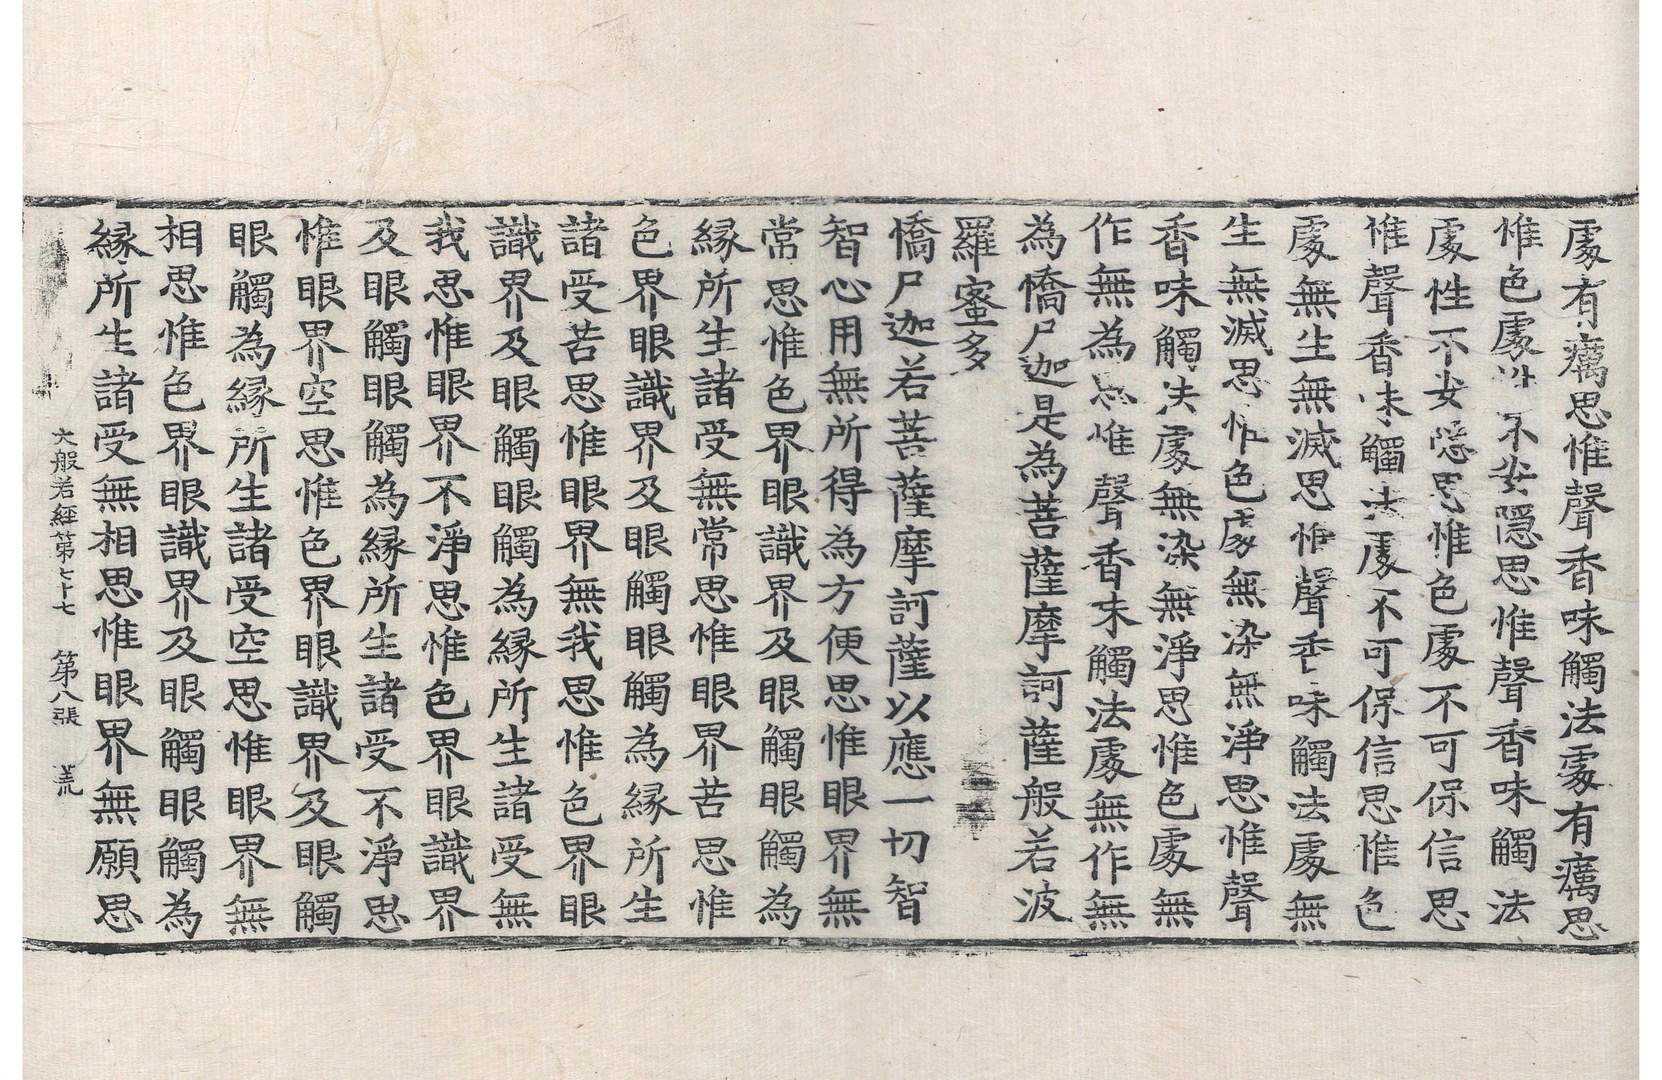 處有癘思惟聲香味觸法處有癘思
惟色處性不安隱思惟聲香味觸法
處性不安隱思惟色處不可保信思
惟聲香味觸法處不可保信思惟色
處無生無滅思惟聲香味觸法處無
生無滅思惟色處無染無淨思惟聲
香味觸法處無染無淨思惟色處無
作無為思惟聲香味觸法處無作無
為憍尸迦是為菩薩摩訶薩般若波
羅蜜多
憍尸迦若菩薩摩訶薩以應一切智
智心用無所得為方便思惟眼界無
常思惟色界眼識界及眼觸眼觸為
緣所生諸受無常思惟眼界苦思惟
色界眼識界及眼觸眼觸為緣所生
諸受苦思惟眼界無我思惟色界眼
識界及眼觸眼觸為緣所生諸受無
我思惟眼界不淨思惟色界眼識界
及眼觸眼觸為緣所生諸受不淨思
惟眼界空思惟色界眼識界及眼觸
眼觸為緣所生諸受空思惟眼界無
相思惟色界眼識界及眼觸眼觸為
緣所生諸受無相思惟眼界無願思
大般若經第七十七 第八張 荒